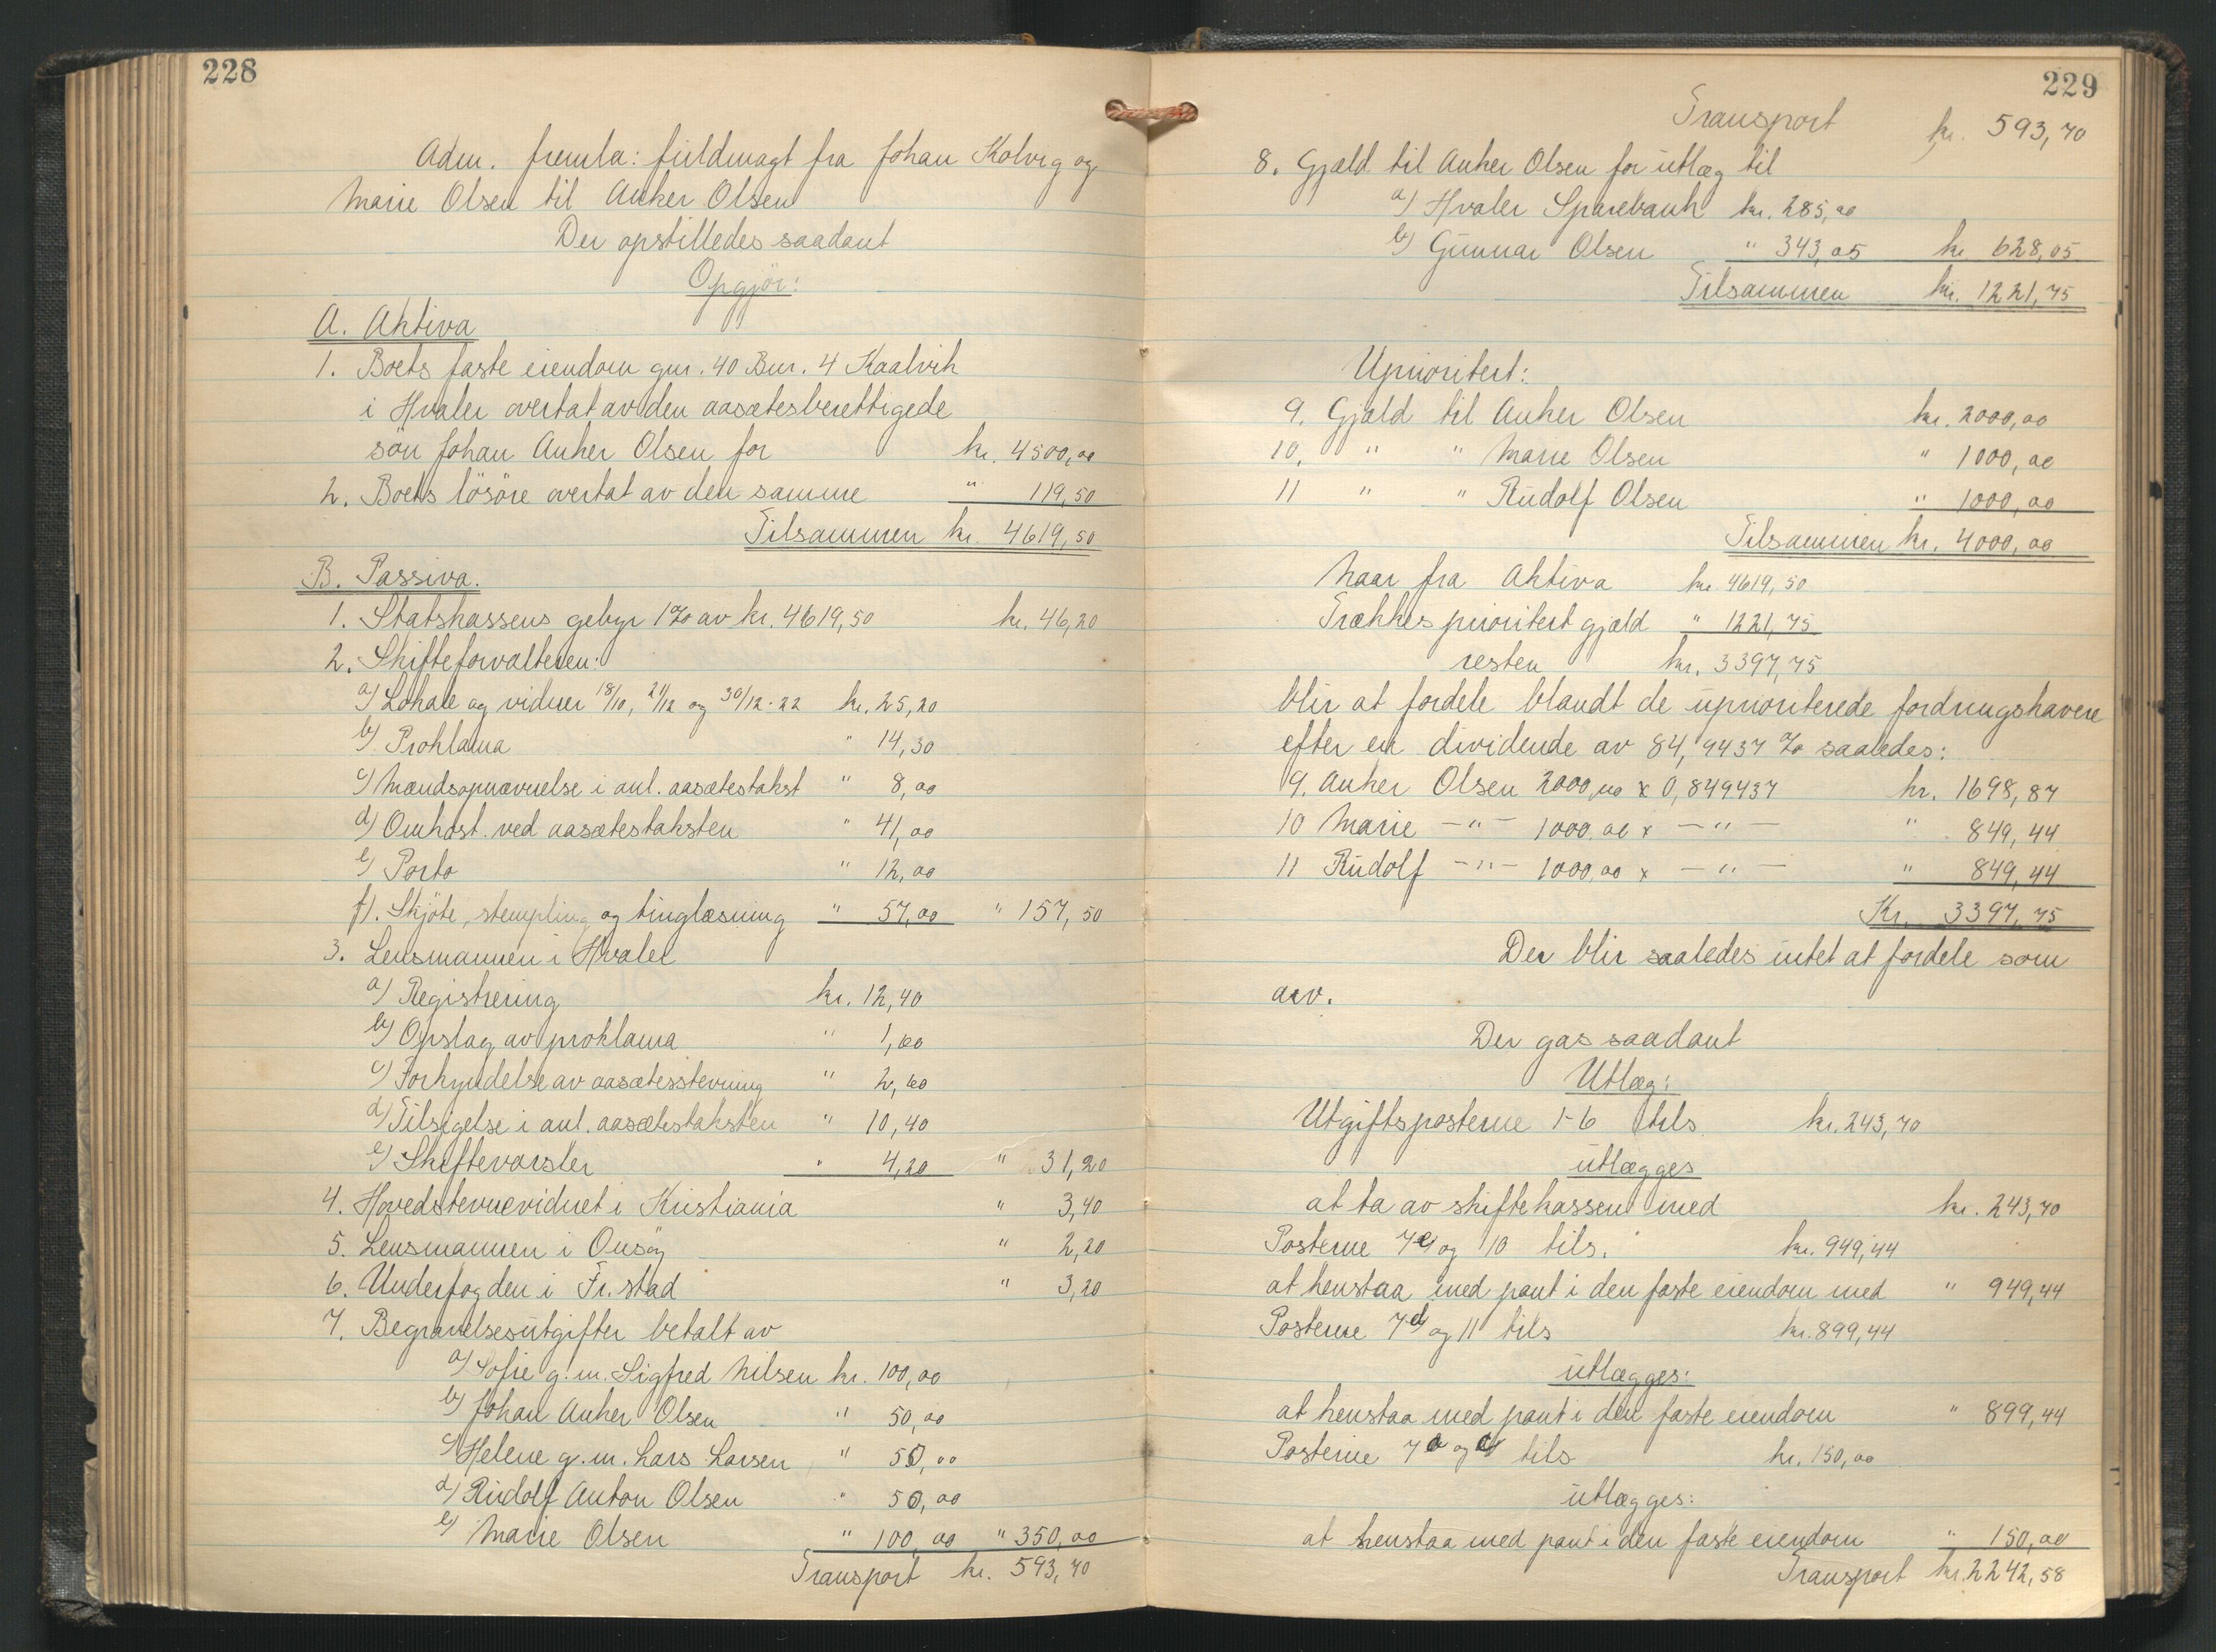 228
Adm. fremla: fuldmagt fra Johan Kolvig og
Marie Olsen til Anker Olsen
Der opstilledes saadant
Opgjør:
A. Aktiva
1. Boets faste eiendom gnr. 40 Bnr. 4 Kaalvik
i Hvaler overtat av den aasætesberettigede
søn Johan Anker Olsen for kr. 4500,00
2. Boets løsøre overtat av den samme " 119,50
Tilsammen kr. 4619,50
B. Passiva.
1. Statskassens gebyr 1% av kr. 4619,50 kr. 46,20
2. Skifteforvalteren:
a) Lokale og vidner 18/10, 21/12 og 30/12-22 kr. 25,20
b) Proklama " 14,30
c) Mændsopnævnelse i anl. aasætestakst " 8,00
d) Omkost. ved aasætestaksten " 41,00
e) Porto " 12,00
f). Skjøte, stempling og tinglæsning " 57,00 " 157,50
3. Lensmannen i Hvaler
a) Registrering kr. 12,40
b) Opslag av proklama " 1,60
c) Forkyndelse av aasætesstevning " 2,60
d) Tilsigelse i anl. aasætestaksten " 10,40
e) Skiftevarsler " 4,20 " 31,20
4. Hovedstevnevidnet i Kristiania " 3,40
5. Lensmannen i Onsøy " 2,20
6. Underfogden i Fr.stad " 3,20
7. Begravelsesutgifter betalt av
a) Sofie g.m. Sigfred Nilsen kr. 100,00
b) Johan Anker Olsen " 50,00
c) Helene g.m. Lars Larsen " 50,00
d) Rudolf Anton Olsen " 50,00
e) Marie Olsen " 100,00 " 350,00
Transport kr. 593,70
229
Transport kr. 593,70
8. Gjæld til Anker Olsen for utlæg til
a) Hvaler Sparebank kr. 285,00
b) Gunnar Olsen " 343,05 kr 628,05
Tilsammen kr. 1221,75
Uprioritert:
9. Gjæld til Anker Olsen kr. 2000,00
10. " " Marie Olsen " 1000,00
11 " " Rudolf Olsen " 1000,00
Tilsammen kr. 4000,00
Naar fra Aktiva kr. 4619,50
Trækkes prioritert gjæld " 1221,75
resten kr. 3397,75
blir at fordele blandt de uprioriterede fordringshavere
efter en dividende av 84,9437 % saaledes:
9. Anker Olsen 2000,00 x 0,849437 kr. 1698,87
10 Marie -"- 1000.00 x -"- " 849,44
11 Rudolf -"- 1000.00 x -"- " 849,44
Kr. 3397,75
Der blir saaledes intet at fordele som
arv.
Der gas saadant
Utlæg:
Utgiftsposterne 1-6 tils. kr. 243,70
utlægges
at ta av skiftekassen med kr. 243,70
Posterne 7e) og 10 tils. kr. 949,44
at henstaa med pant i den faste eiendom med " 949,44
Posterne 7d) og 11 tils kr. 899,44
utlægges:
at henstaa med pant i den faste eiendom " 899,44
Posterne 7a og c) tils kr. 150,00
utlægges:
at henstaa med pant i den faste eiendom " 150,00
Transport kr. 2242,58